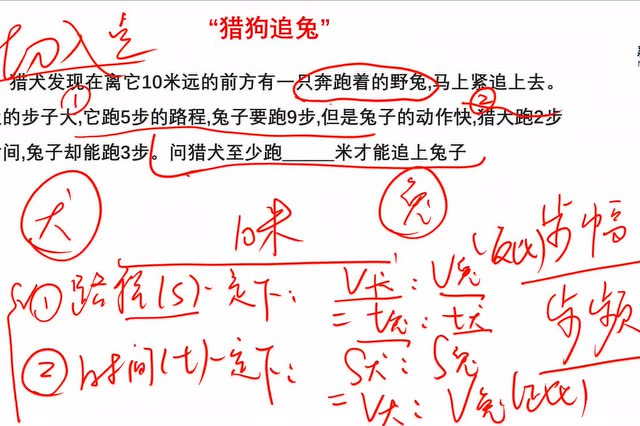 切入点
“猎狗追兔”
猎犬发现在离它10米远的前方有一只奔跑着的野兔,马上紧追上去。
的步子大,它跑5步的路程,兔子要跑9步,但是兔子的动作快,猎犬跑2步
间,兔子却能跑3步。问猎犬至少跑_____米才能追上兔子
① ②
犬 10米 兔
① 路程(S)一定下: V犬:V兔 (反比) 步幅
= t兔:t犬 步频
② 时间(t)一定下: S犬:S兔
= V犬:V兔 (正比)